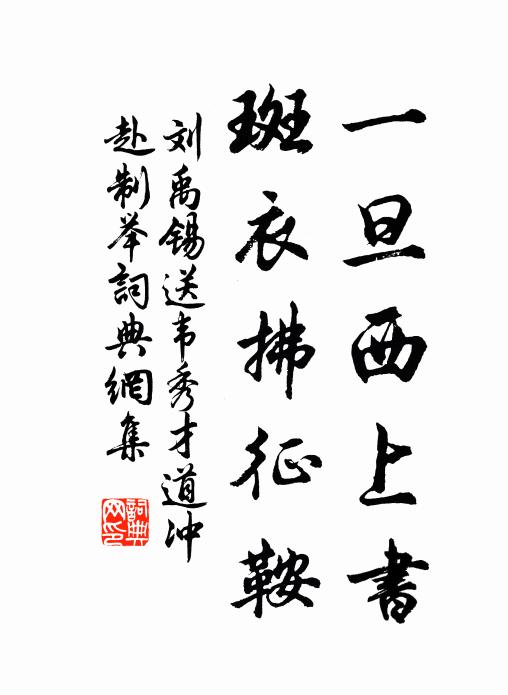 一旦西上書
斑衣拂征鞍
刘禹锡送韦秀才道冲
赴制举詞典網集
詞典
网印